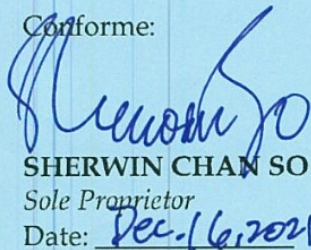 Conforme:
SHERWIN CHAN SO
Sole Proprietor
Date: Dec. 16, 2021